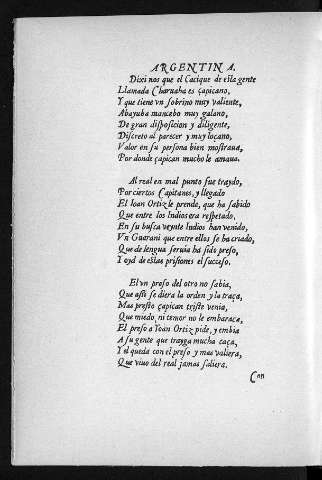 ARGENTINA.
Dixi nos que el Cacique de esta gente
Llamada Charuaha es çapicano,
Y que tiene vn sobrino muy valiente,
Abayuba mancebo muy galano,
De gran disposicion y diligente,
Discreto al parecer y muy loçano,
Valor en su persona bien mostraua,
Por donde çapican mucho le amaua.
Al real en mal punto fue traydo,
Por ciertos Capitanes, y llegado
El Ioan Ortiz le prende, que ha sabido
Que entre los Indios era respetado,
En su busca veynte Indios han venido,
Vn Guarani que entre ellos se ha criado,
Que de lengua seruia ha sido preso,
Y oyd de estas prisiones el sucesso.
El vn preso del otro no sabia,
Que assi se diera la orden y la traça,
Mas presto çapican triste venia,
Que miedo, ni temor no le embaraça,
El preso a Ioan Ortiz pide, y embia
A su gente que trayga mucha caça,
Y el queda con el preso y mas valiera,
Que viuo del real jamas saliera.
Con